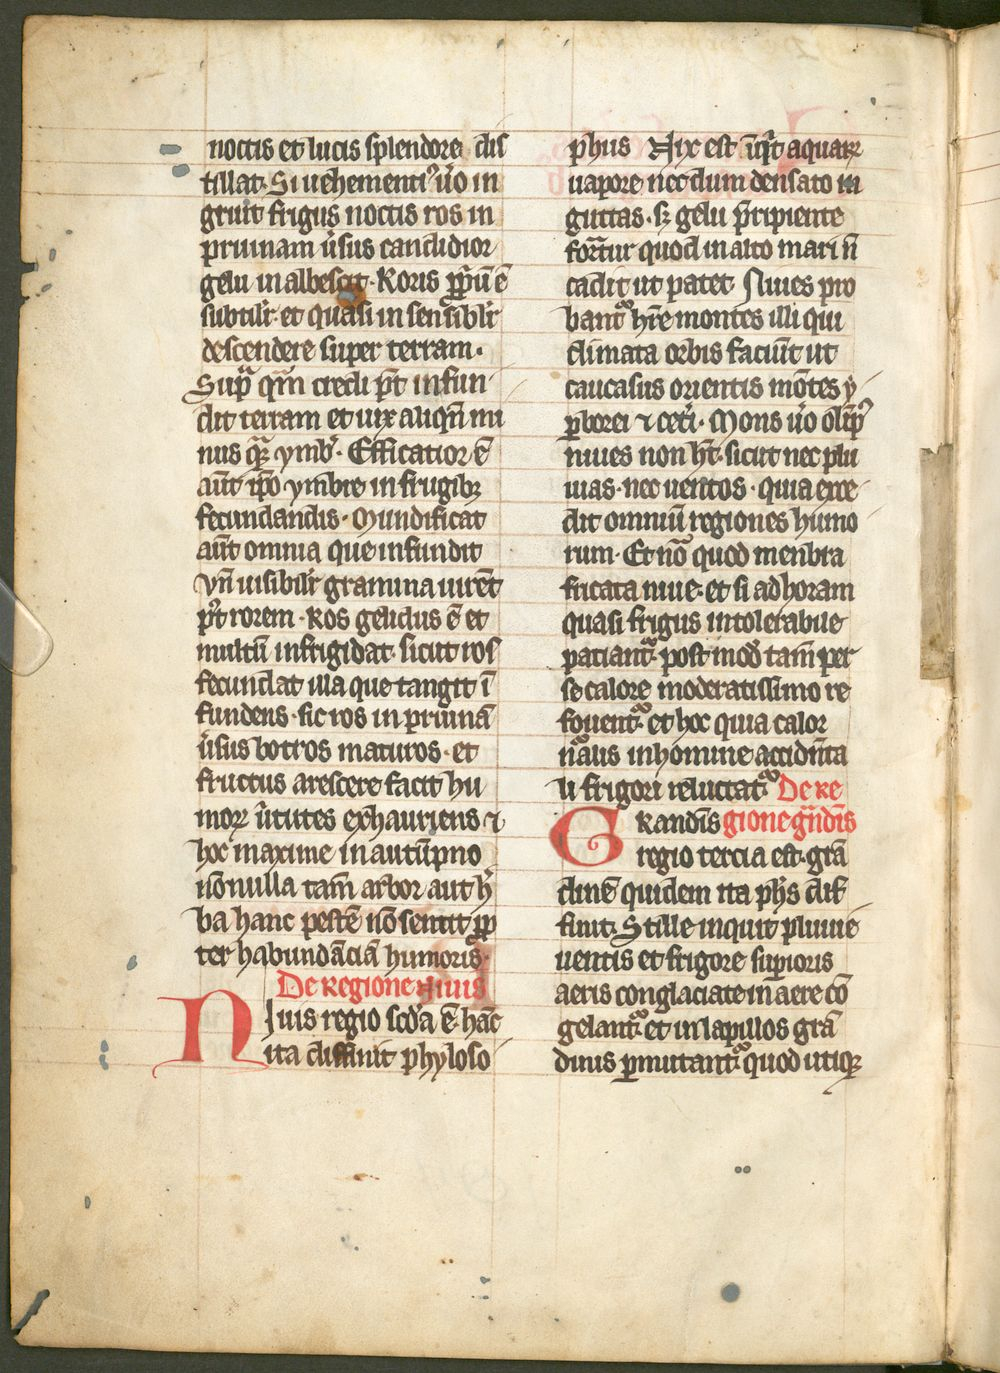 noctis et lucis splendore dis
tillat. Si uehementi⁹ ůo in
gruit frigus noctis ros in
pruinam ůsus candidior
gelu inalbescit. Roris ꝓpͥũ ẽ
subtilit̾ et quasi insensiblit̾
descendere super terram.
Supͣ qm̃ credi pt̃ infun
dit terram et uix aliqñ mi
nus qͣꝫ ymbͬ. Efficatior ẽ
aũt ip̃o ymbre in frugibꝫ
fecundandis. Mundificat
aũt omnia que infundit
vñ uisibilit̾ gramina uirẽt
pt̃ rorem. Ros gelidus ẽ et
multũ infrigidat. sicut ros
fecundat illa que tangit ĩ
fundens. sic ros in pruinã
ůsus botros maturos. et
fructus arescere facit hu
moꝝ ůtutes exhauriens ⁊
hoc maxime in autũpno
nõnulla tam̃ arbor aut h̾
ba hanc pestẽ nõ sentit ꝓp
ter habundãciã humoris.
De regione niuis
Niuis regio scd̾a ẽ. hanc
ita diffinit phyloso
phus Nix est inqͥt aquaꝝ
uapore necdum densato in
guttas. sꝫ gelu p̃ripiente
formͣtur quod in alto mari ñ
cadit ut patet. Niues pro
bantᷣ hr̃e montes illi qui
climata orbis faciũt ut
caucasus orientis mõtes y
ꝑborei ⁊ cet̾i. Mons ůo olĩp⁹
niues non hꝫ. sicut nec plu
uias. nec uentos. quia exce
dit omniũ regiones humo
rum. Et nõ quod menbra
fricata niue. et si ad horam
quasi frigus intolerabile
paciantᷣ. post mod̃ tam̃ per
se calore moderatissimo re
fouentᷣ. et hoc quia calor
nͣaͣlis in homine accidẽta
li frigori reluctatᷣ. De re
Grandĩs gione gͣndĩs
regio tercia est. grã
dinẽ quidem ita ph̾s dif
finit. Stille inquit pluuie
uentis et frigore suꝑioris
aeris conglaciate in aere cõ
gelantᷣ. et in lapillos grã
dinis ꝑmutantᷣ quod utiqꝫ